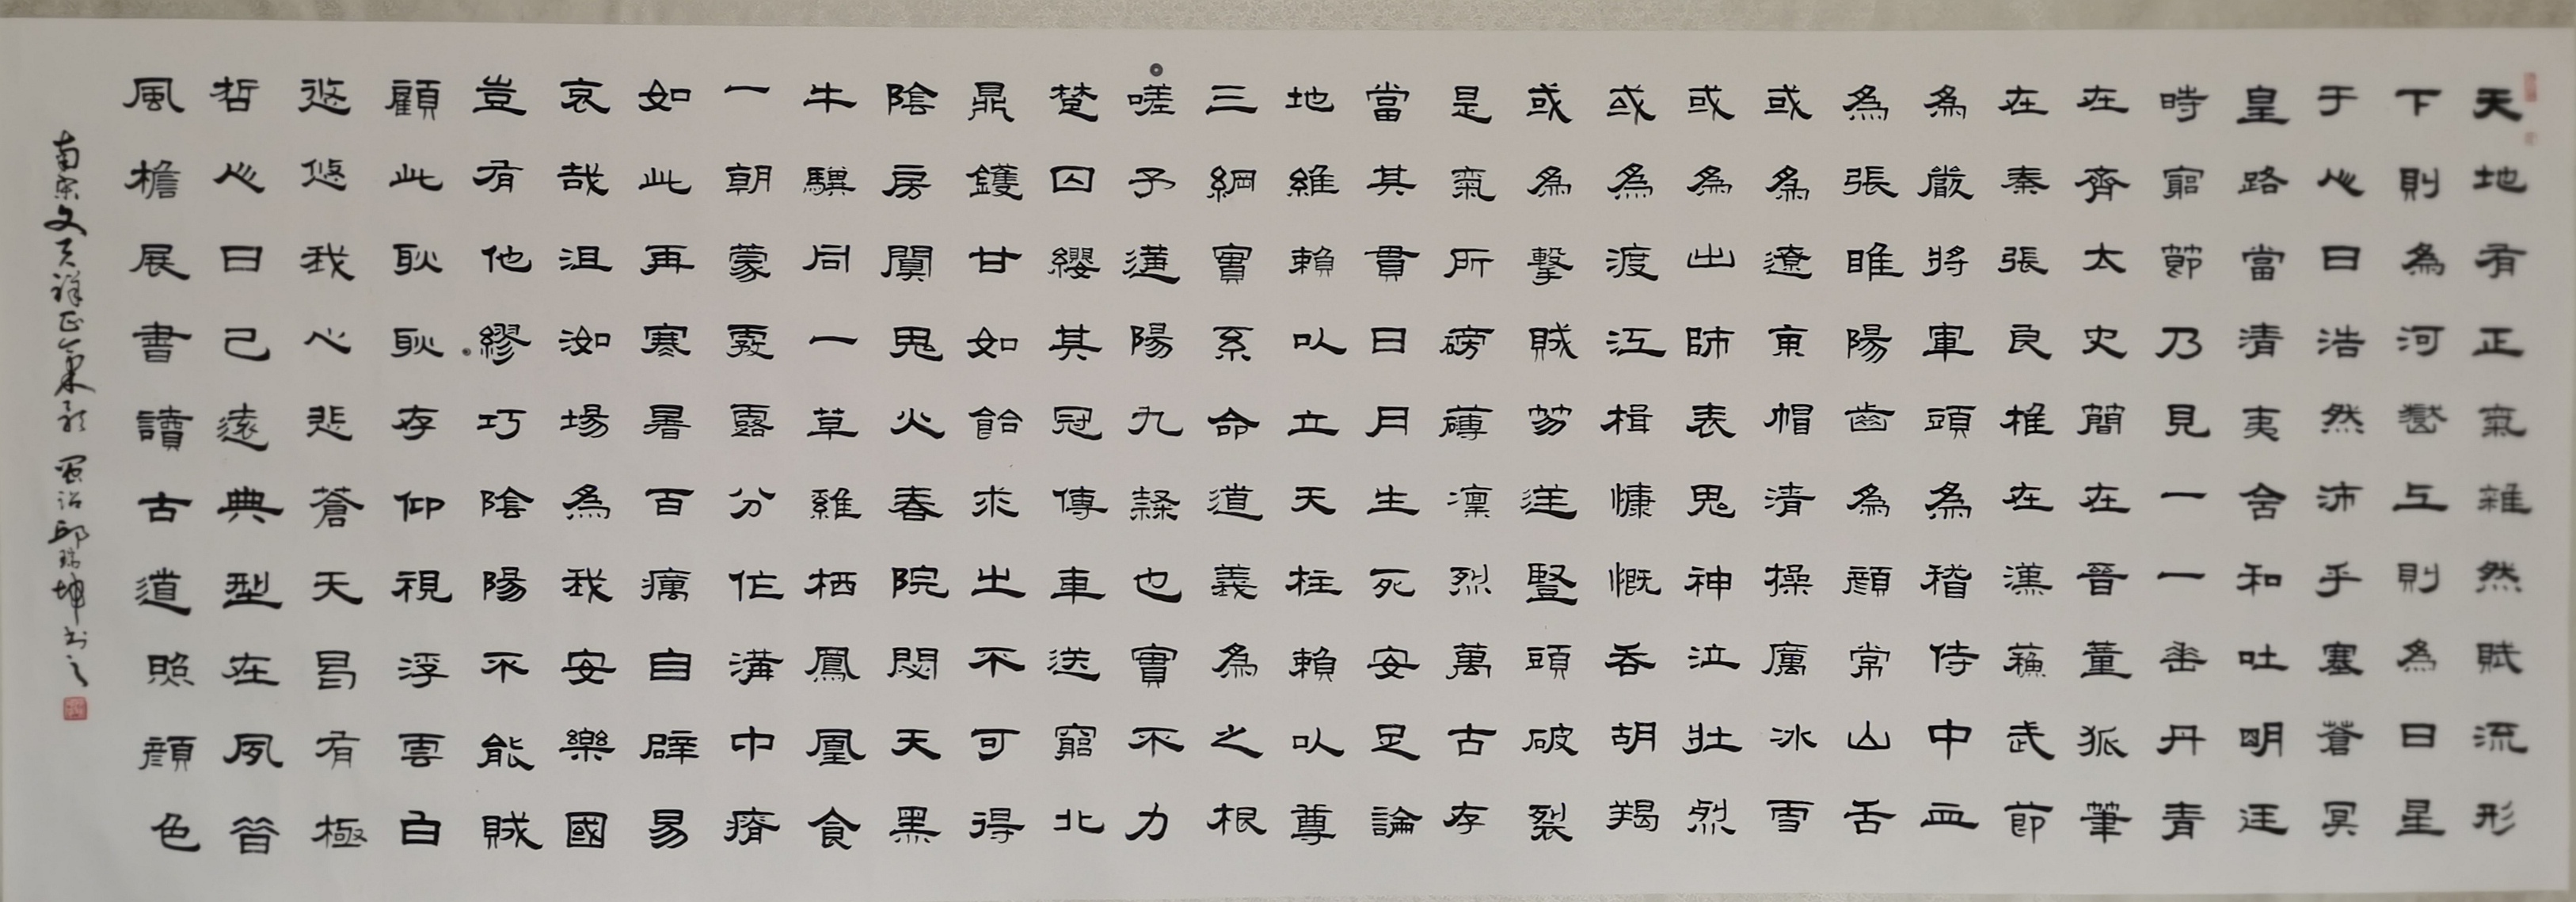 天地有正氣雜然賦流形
下則為河嶽上則為日星
于心曰浩然沛乎塞蒼冥
皇路當清夷含和吐明廷
時窮節乃見一一垂丹青
在齊太史簡在晉董狐筆
在秦張良椎在漢蘇武節
為嚴將軍頭為稽侍中血
為張睢陽齒為顏常山舌
或為遼東帽清操厲冰雪
或為出師表鬼神泣壯烈
或為渡江楫慷慨吞胡羯
或為擊賊笏逆豎頭破裂
是氣所磅礴凜烈萬古存
當其貫日月生死安足論
地維賴以立天柱賴以尊
三綱實系命道義為之根
嗟予遘陽九隸也實不力
楚囚纓其冠傳車送窮北
鼎鑊甘如飴求之不可得
陰房闃鬼火春院閟天黑
牛驥同一草雞栖鳳凰食
一朝蒙霧露分作溝中瘠
如此再寒暑百癘自辟易
哀哉沮洳場為我安樂國
豈有他繆巧陰陽不能賊
顧此耿耿存仰視浮雲白
悠悠我心悲蒼天曷有極
哲心曰己遠典型在夙昔
風檐展書讀古道照顏色
南宋文天祥正氣歌 閩詔邱瑞坤书之